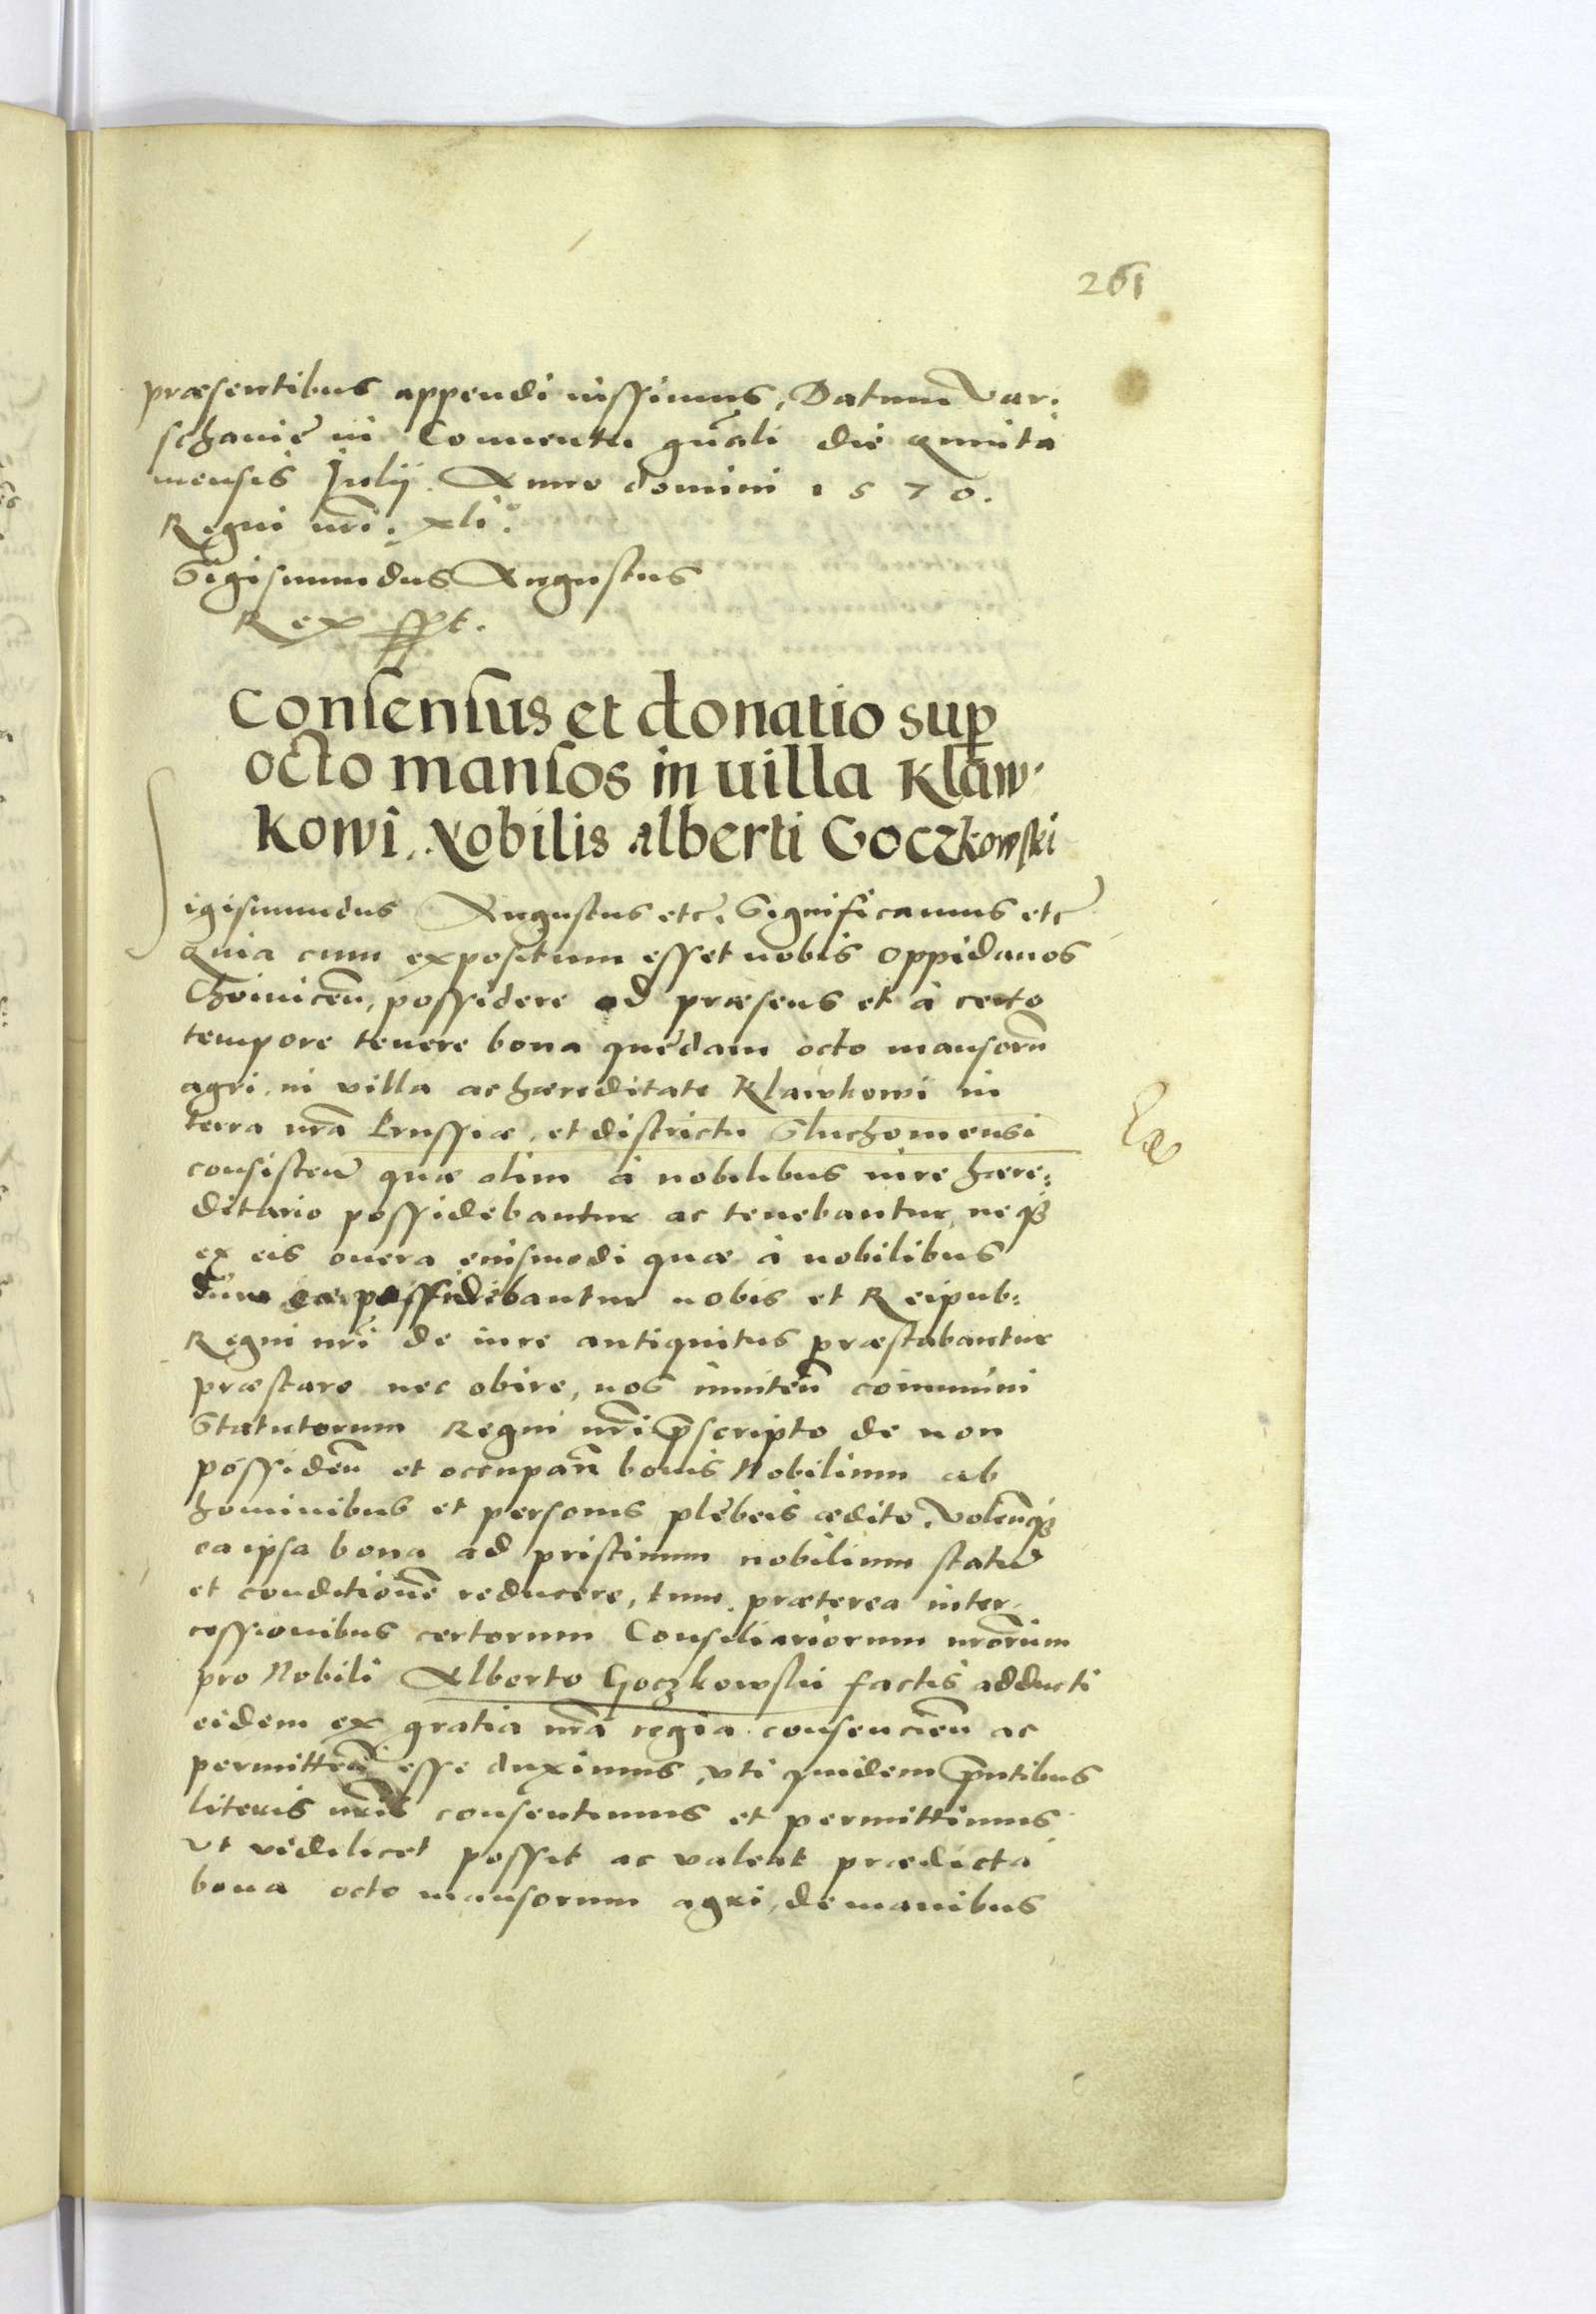 261
præsentibus appendi iussimus, Datum Var:
schaviē in Conventu gn̄ali die quinta
mensis Julij Anno domini 1570.
Regni nr̄i. xli:
Sigismundus Augustus
Rex sspt.
Consensus et donatio sup
octo mansos in villa Klaw-
kowi. Nobilis alberti Goczkowski
Sigismundus Augustus etc. Significamus etc
Quia cum expositum esset nobis oppidanos
Choinicen̄, possidere ad præsens et à certo
tempore tenere bona quędam octo mansorū
agri in villa ac hæreditate Klawkowi in
terra nr̄a Prussiæ, et districtu Sluchomensi
consisten̄ quæ olim à nobilibus iure hære:
ditario possidebantur ac tenebantur, neq3
ex eis onera eiusmodi quæ à nobilibus
dum ea possidebantur nobis et Reipub:
Regni nr̄i de iure antiquitus præstabantur
præstare nec obire, nos inniten̄ communi
Statutorum Regni nr̄i p̄scripto de non
possiden̄ et occupan̄ bonis Nobilium ab
hominibus et personis plebeis ædito. Volen̄q3
ea ipsa bona ad pristinum nobilium statū
et conditionē reducere, tum præterea inter-
cessionibus certorum Consiliariorum nr̄orum
pro Nobili Alberto Goczkowski factis adducti
eidem ex gratia nr̄a regia consencien̄ ac
permitten̄ esse duximus, vti quidem p̄ntibus
literis nr̄is consentimus et permittimus
Vt videlicet possit ac valeat prædicta
bona octo mansorum agri, de manibus